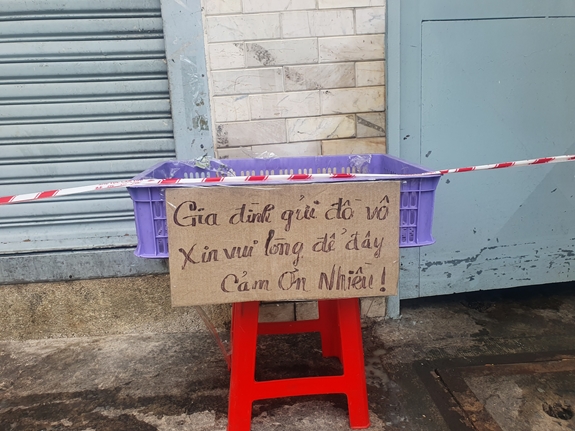 Gia đình gửi đồ vô
Xin vui lòng để đây
Cảm Ơn Nhiều!